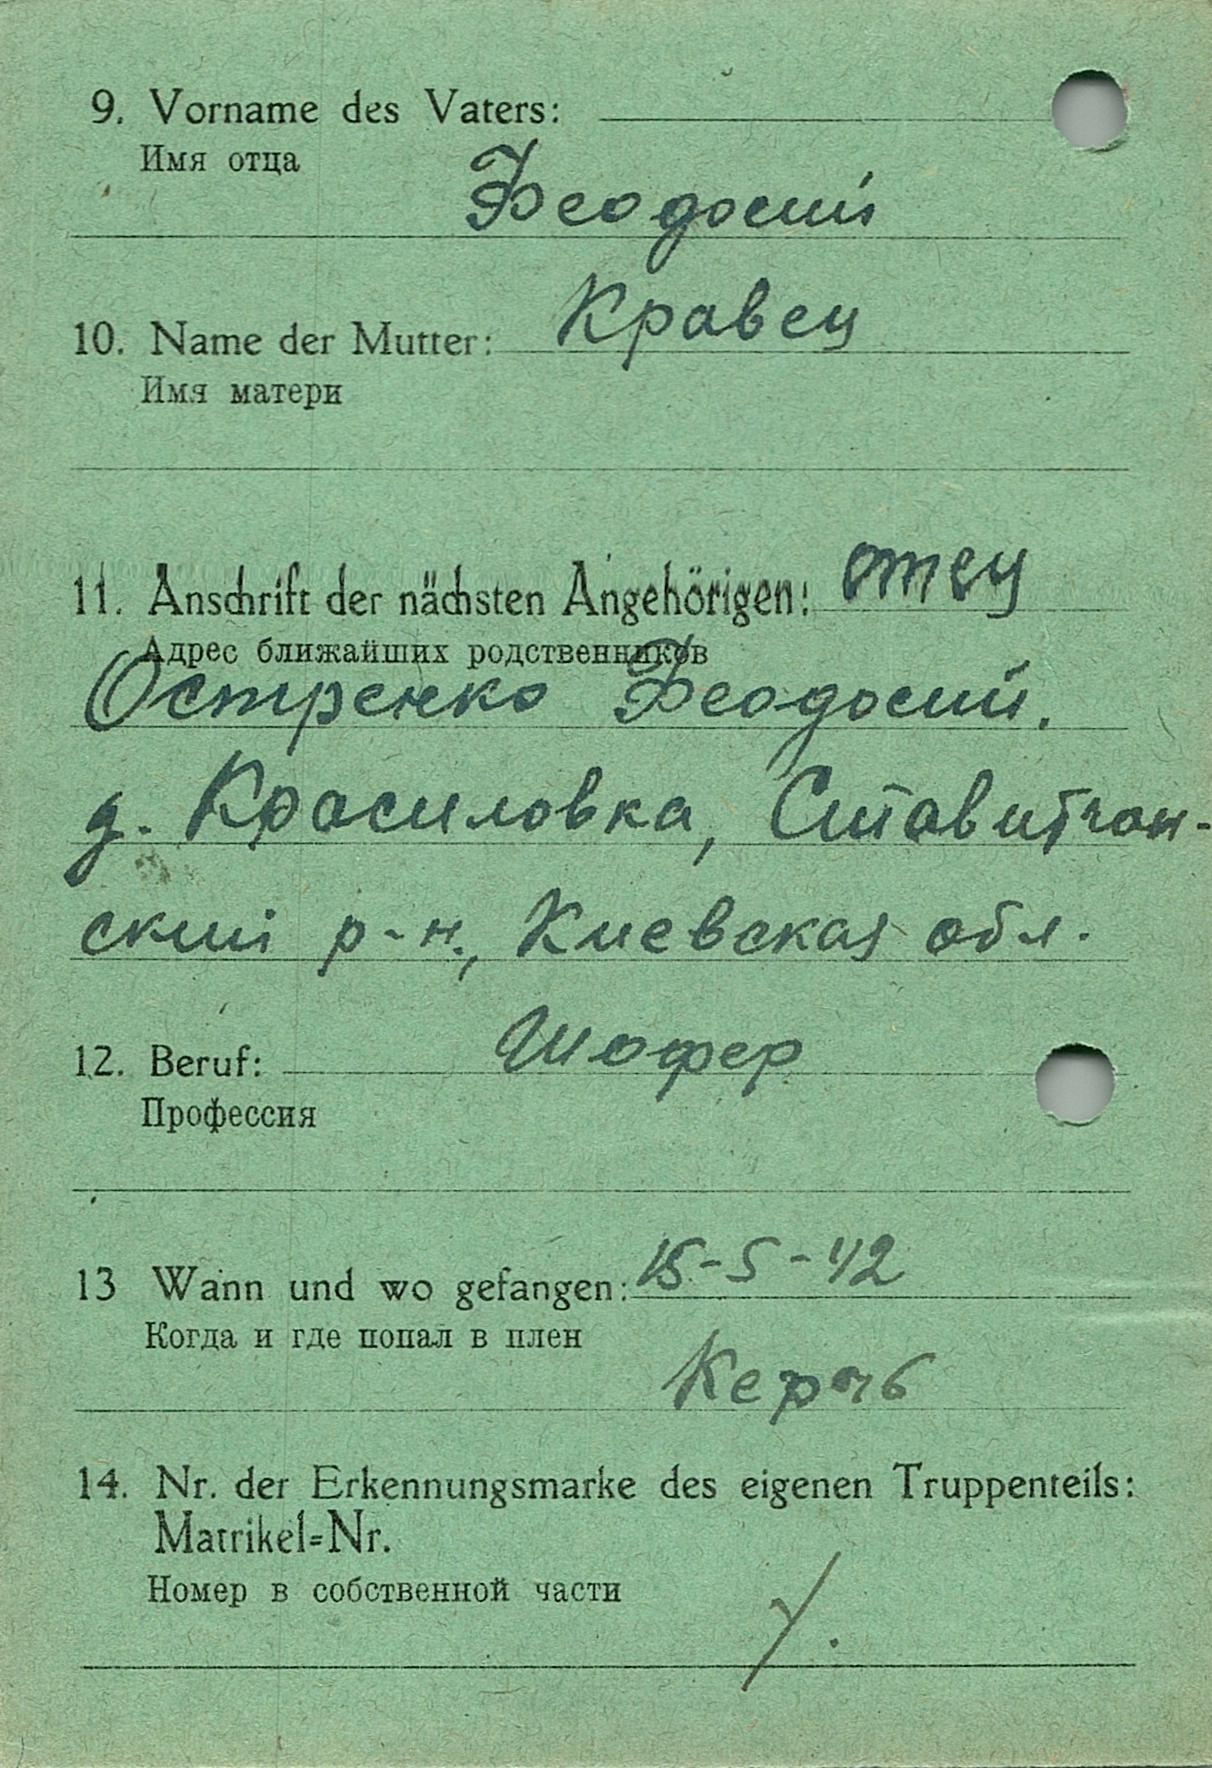 9. Vorname des Vaters:
Имя отца
Феодосий
10. Name der Mutter: Кравец
Имя матери
11. Anschrift der nächsten Angehörigen: отец
Адрес ближайших родственников
Остренко Феодосий.
д. Красиловка, Ставитчан-
ский р-н., Киевская обл.
12. Beruf: Шофер
Профессия
13 Wann und wo gefangen: 15-5-42
Когда и где попал в плен
Керчь
14. Nr. der Erkennungsmarke des eigenen Truppenteils:
Matrikel=Nr.
Номер в собственной части